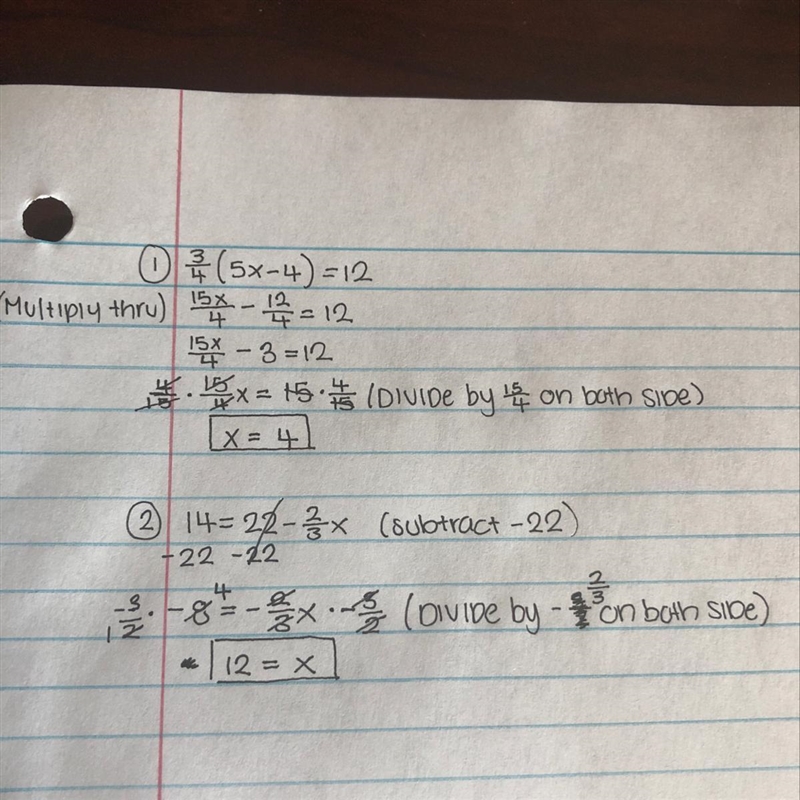 ① 3/4 (5x-4) = 12
(Multiply thru) 15x/4 - 12/4 = 12
15x/4 - 3 = 12
4/15 · 15/4 x = 15 · 4/15 (DIVIDE by 15/4 on both side)
x = 4
② 14 = 22 - 2/3 x (subtract -22)
-22 -22
-3/2 · -8 = -2/3 x · -3/2 (DIVIDE by - 2/3 on both side)
1 4
12 = x